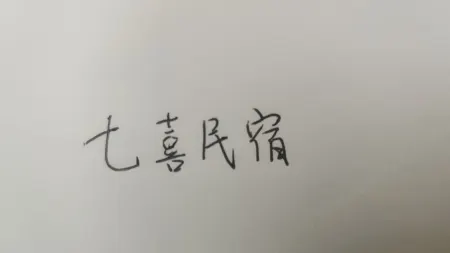 七喜民宿